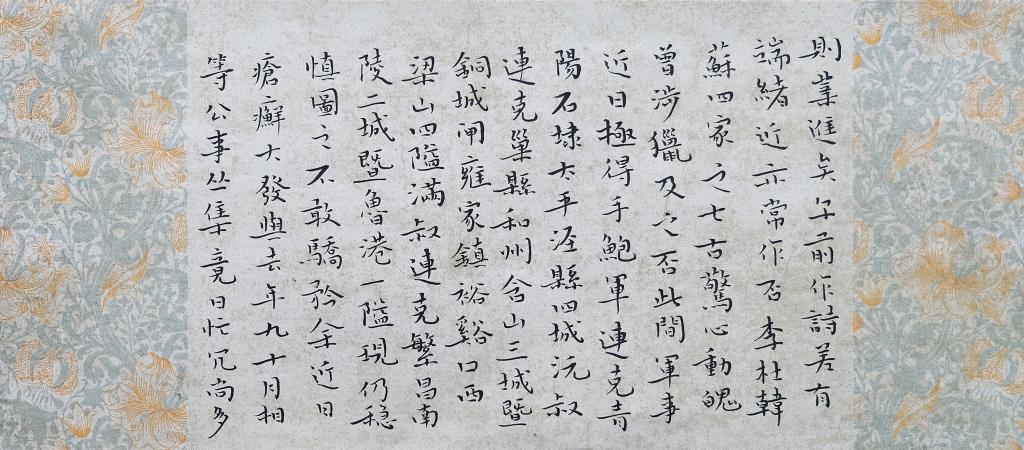 則業進矣尔前作詩差有
端緒近亦常作否李杜韓
蘇四家之七古驚心動魄
曾涉獵及之否此間軍事
近日極得手鮑軍連克青
陽石埭太平涇縣四城沅叔
連克巢縣和州含山三城暨
銅城閘雍家鎮裕谿口西
梁山四隘滿叔連克繁昌南
陵二城暨魯港一隘現仍穩
慎圖之不敢驕矜余近日
瘡癬大發與去年九十月相
等公事丛集竟日忙冗尚多